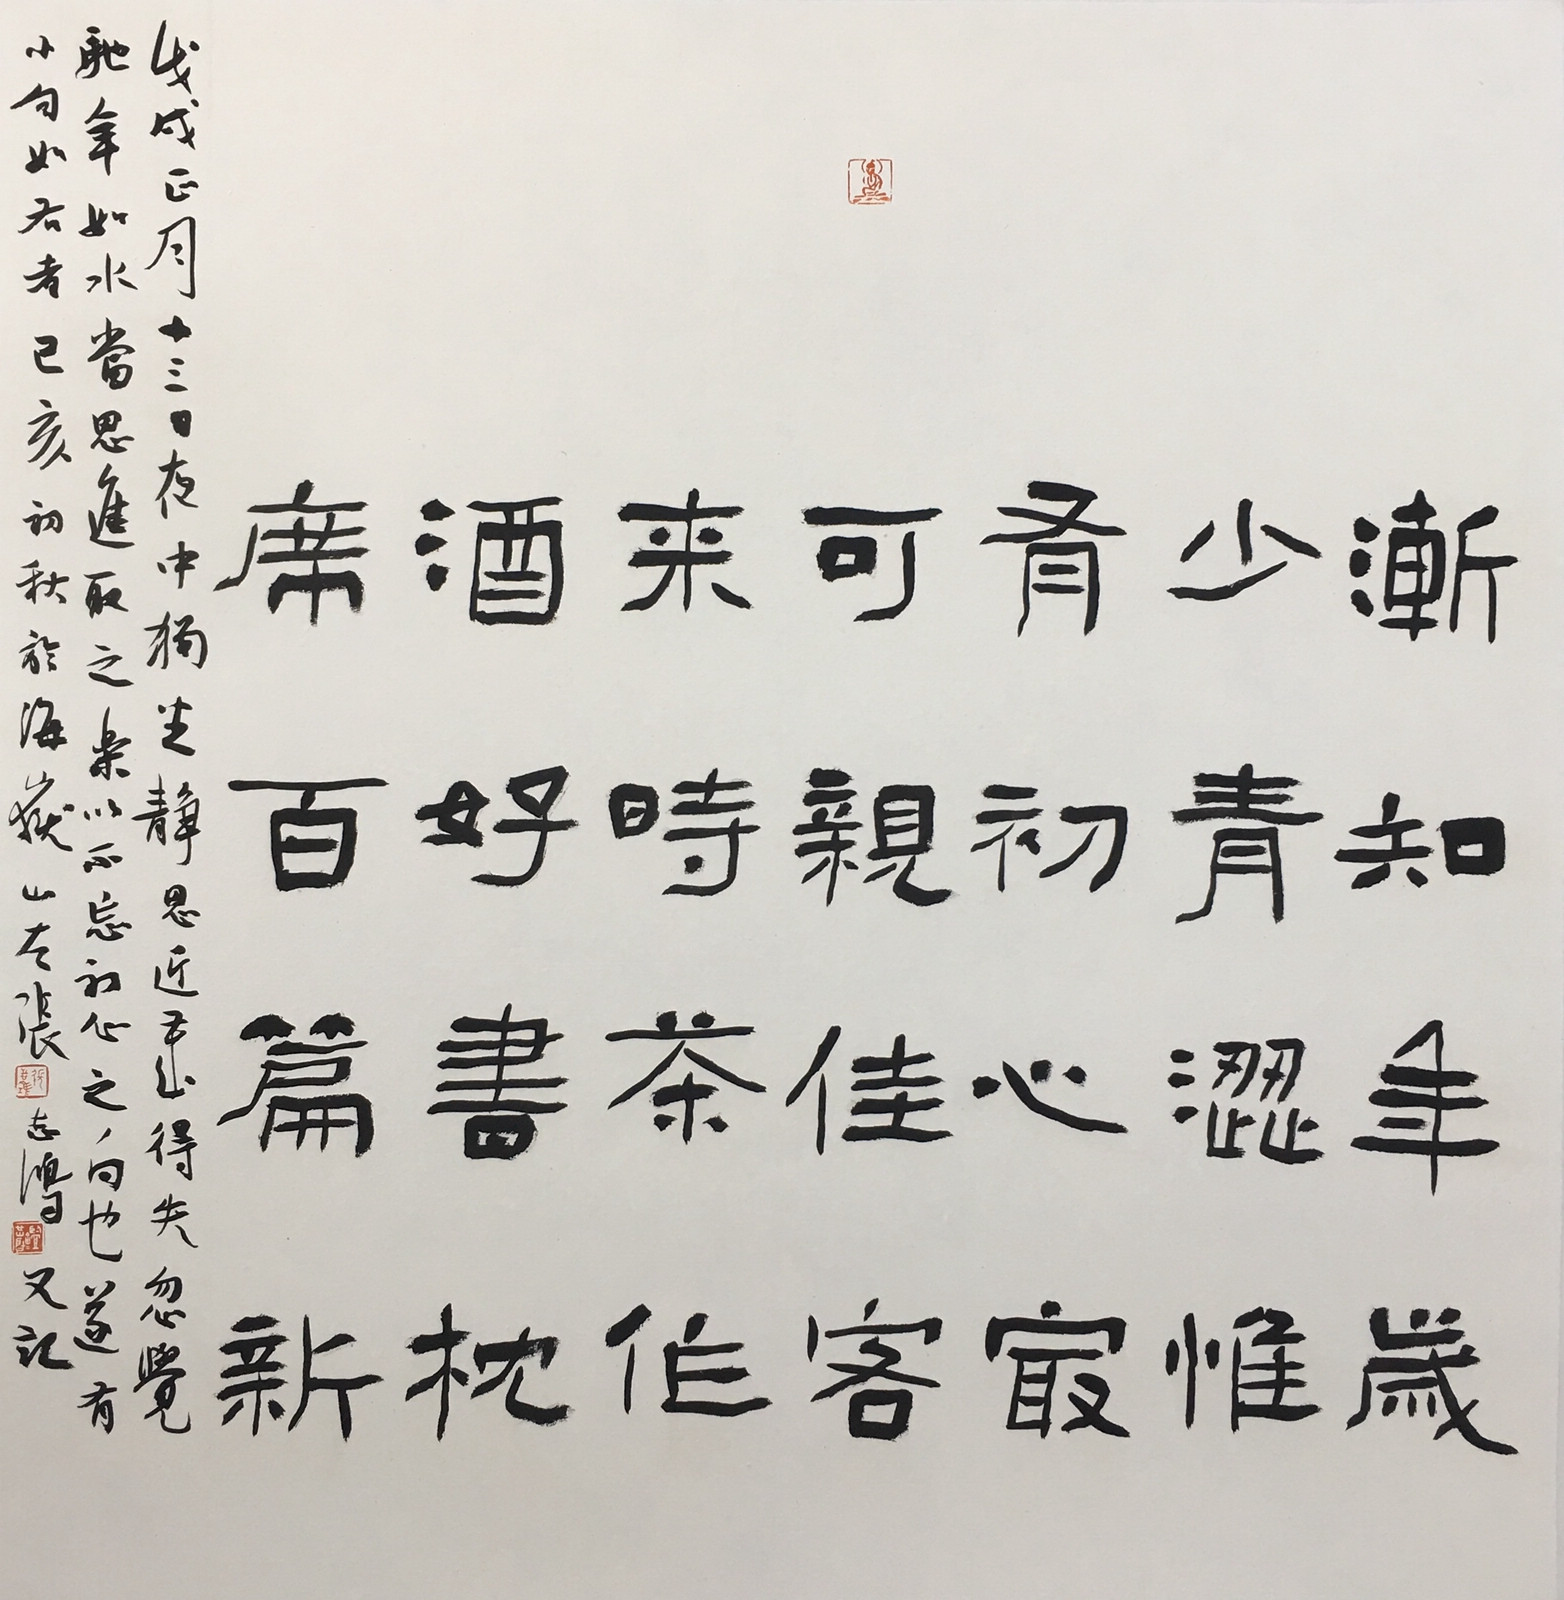 漸知年歲
少青澀惟
有初心最
可親佳客
来時茶作
酒好書枕
席百篇新
戊戌正月十三日夜中獨坐靜思近年得失忽覺
馳年如水當思進取之樂以不忘初心之句也遂有
小句如右者己亥初秋於海嶽山左張志鴻又記